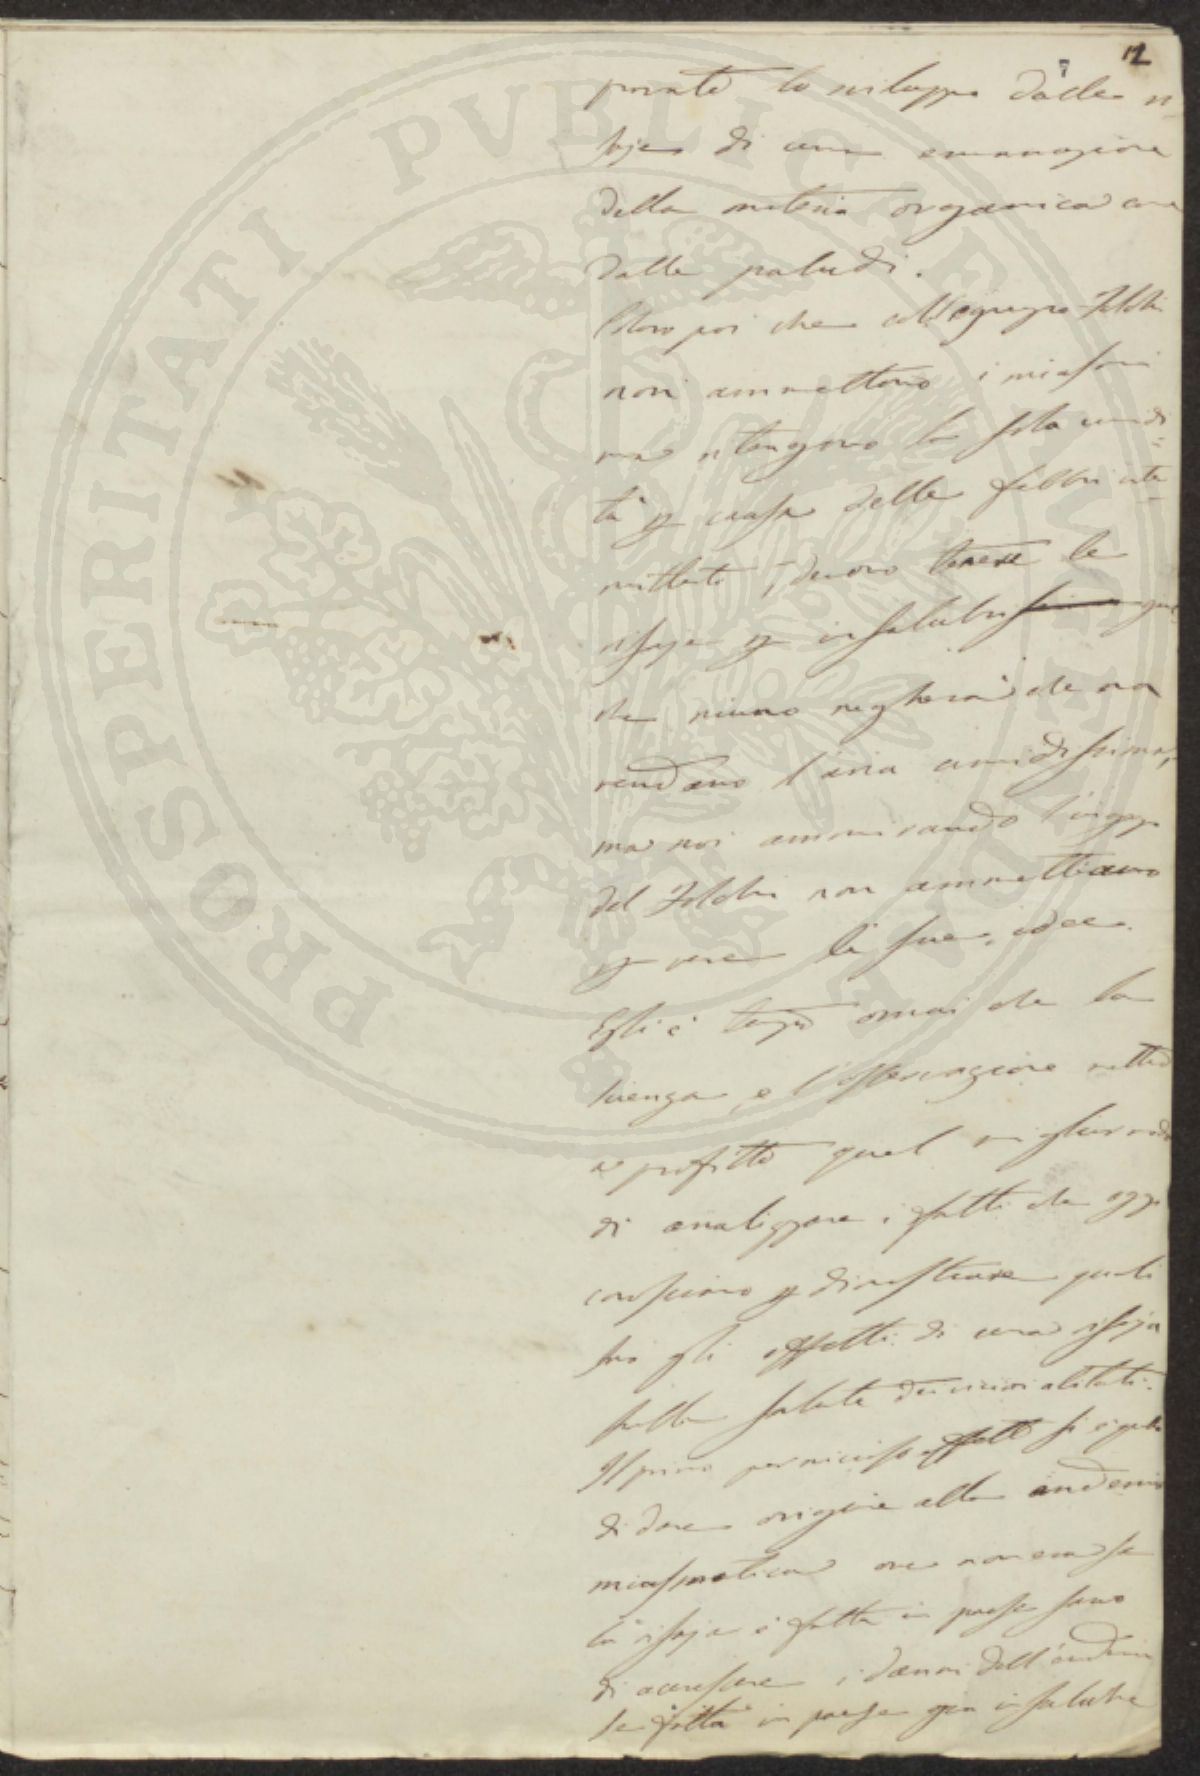 7 12
provato lo sviluppo dalle ri=
saje di una emanazione
della materia organica come
dalle paludi.
Coloro poi che coll'egregio Folchi
non ammettono i miasmi
ma ritengono la sola umidi=
tà per causa delle febbri inter=
mittenti, devono tenere le
risaje per insalubri
che niuno negherà che non
rendano l'aria umidissima,
ma noi ammirando l'ingegno
del Folchi non ammettiamo
per vere le sue idee.
Egli è tempo omai che la
scienza, e l'osservazione metta
a profitto quel miglior modo
di analizzare i fatti che oggi
conosciamo per dimostrare quali
sono gli effetti di una risaja
sulla salute dei vicini abitati.
Il primo pernicioso effetto si è quello
di dare origine alla endemia
miasmatica ove non era se
la risaja è fatta in paese sano
di accrescere i danni dell'endemia
se fatta in paese già insalubre
PROSPERITATI PVBLICAE AVGENDAE